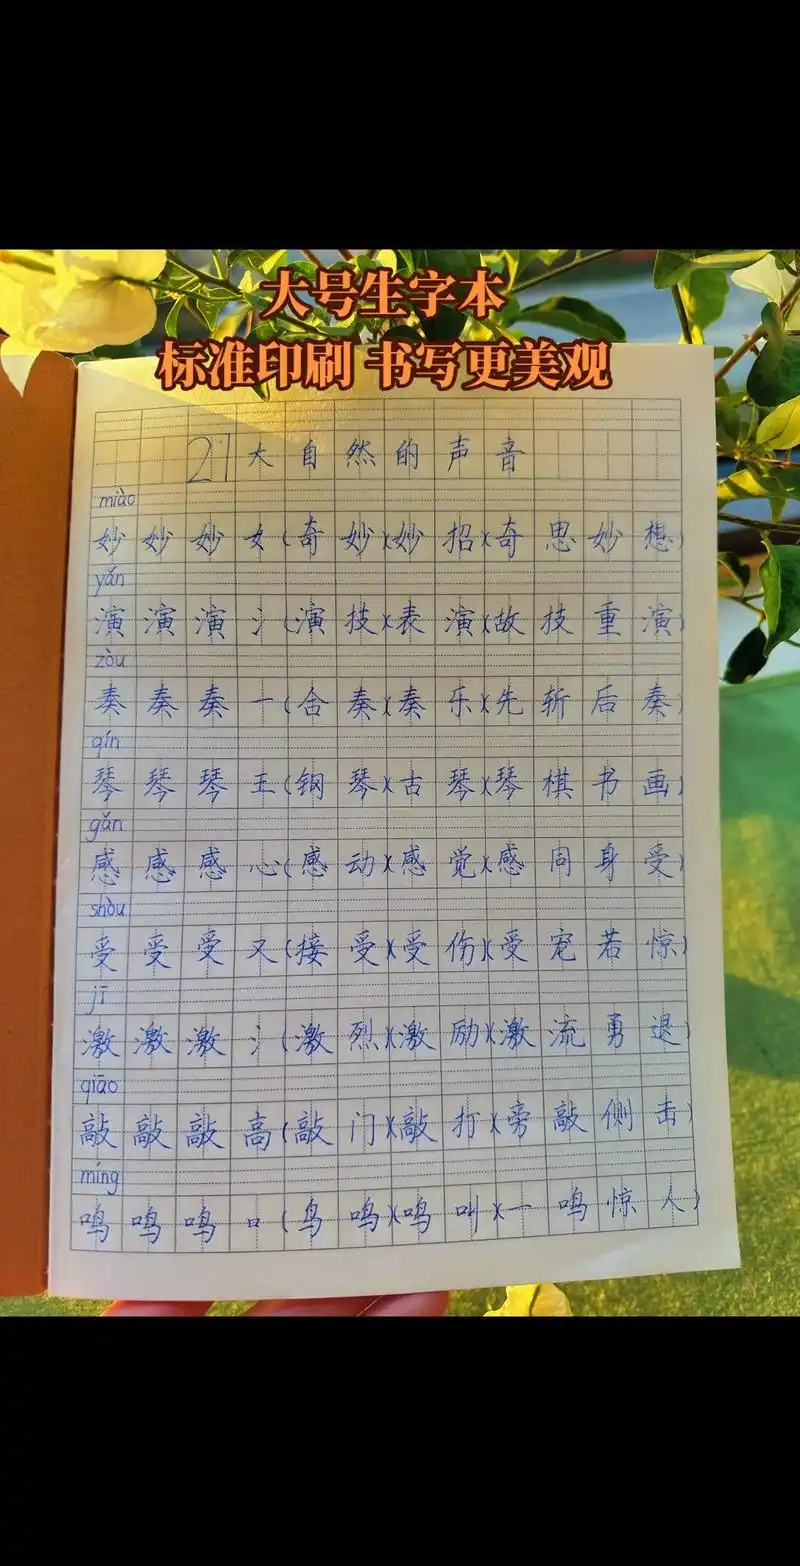 大号生字本
标准印刷 书写更美观
21 大自然的声音
miào
妙妙妙女(奇妙)(妙招)(奇思妙想)
yǎn
演演演氵(演技)(表演)(故技重演)
zòu
奏奏奏一(合奏)(奏乐)(先斩后奏)
qín
琴琴琴王(钢琴)(古琴)(琴棋书画)
gǎn
感感感心(感动)(感觉)(感同身受)
shòu
受受受又(接受)(受伤)(受宠若惊)
jī
激激激氵(激烈)(激励)(激流勇退)
qiāo
敲敲敲高(敲门)(敲打)(旁敲侧击)
míng
鸣鸣鸣口(鸟鸣)(鸣叫)(一鸣惊人)